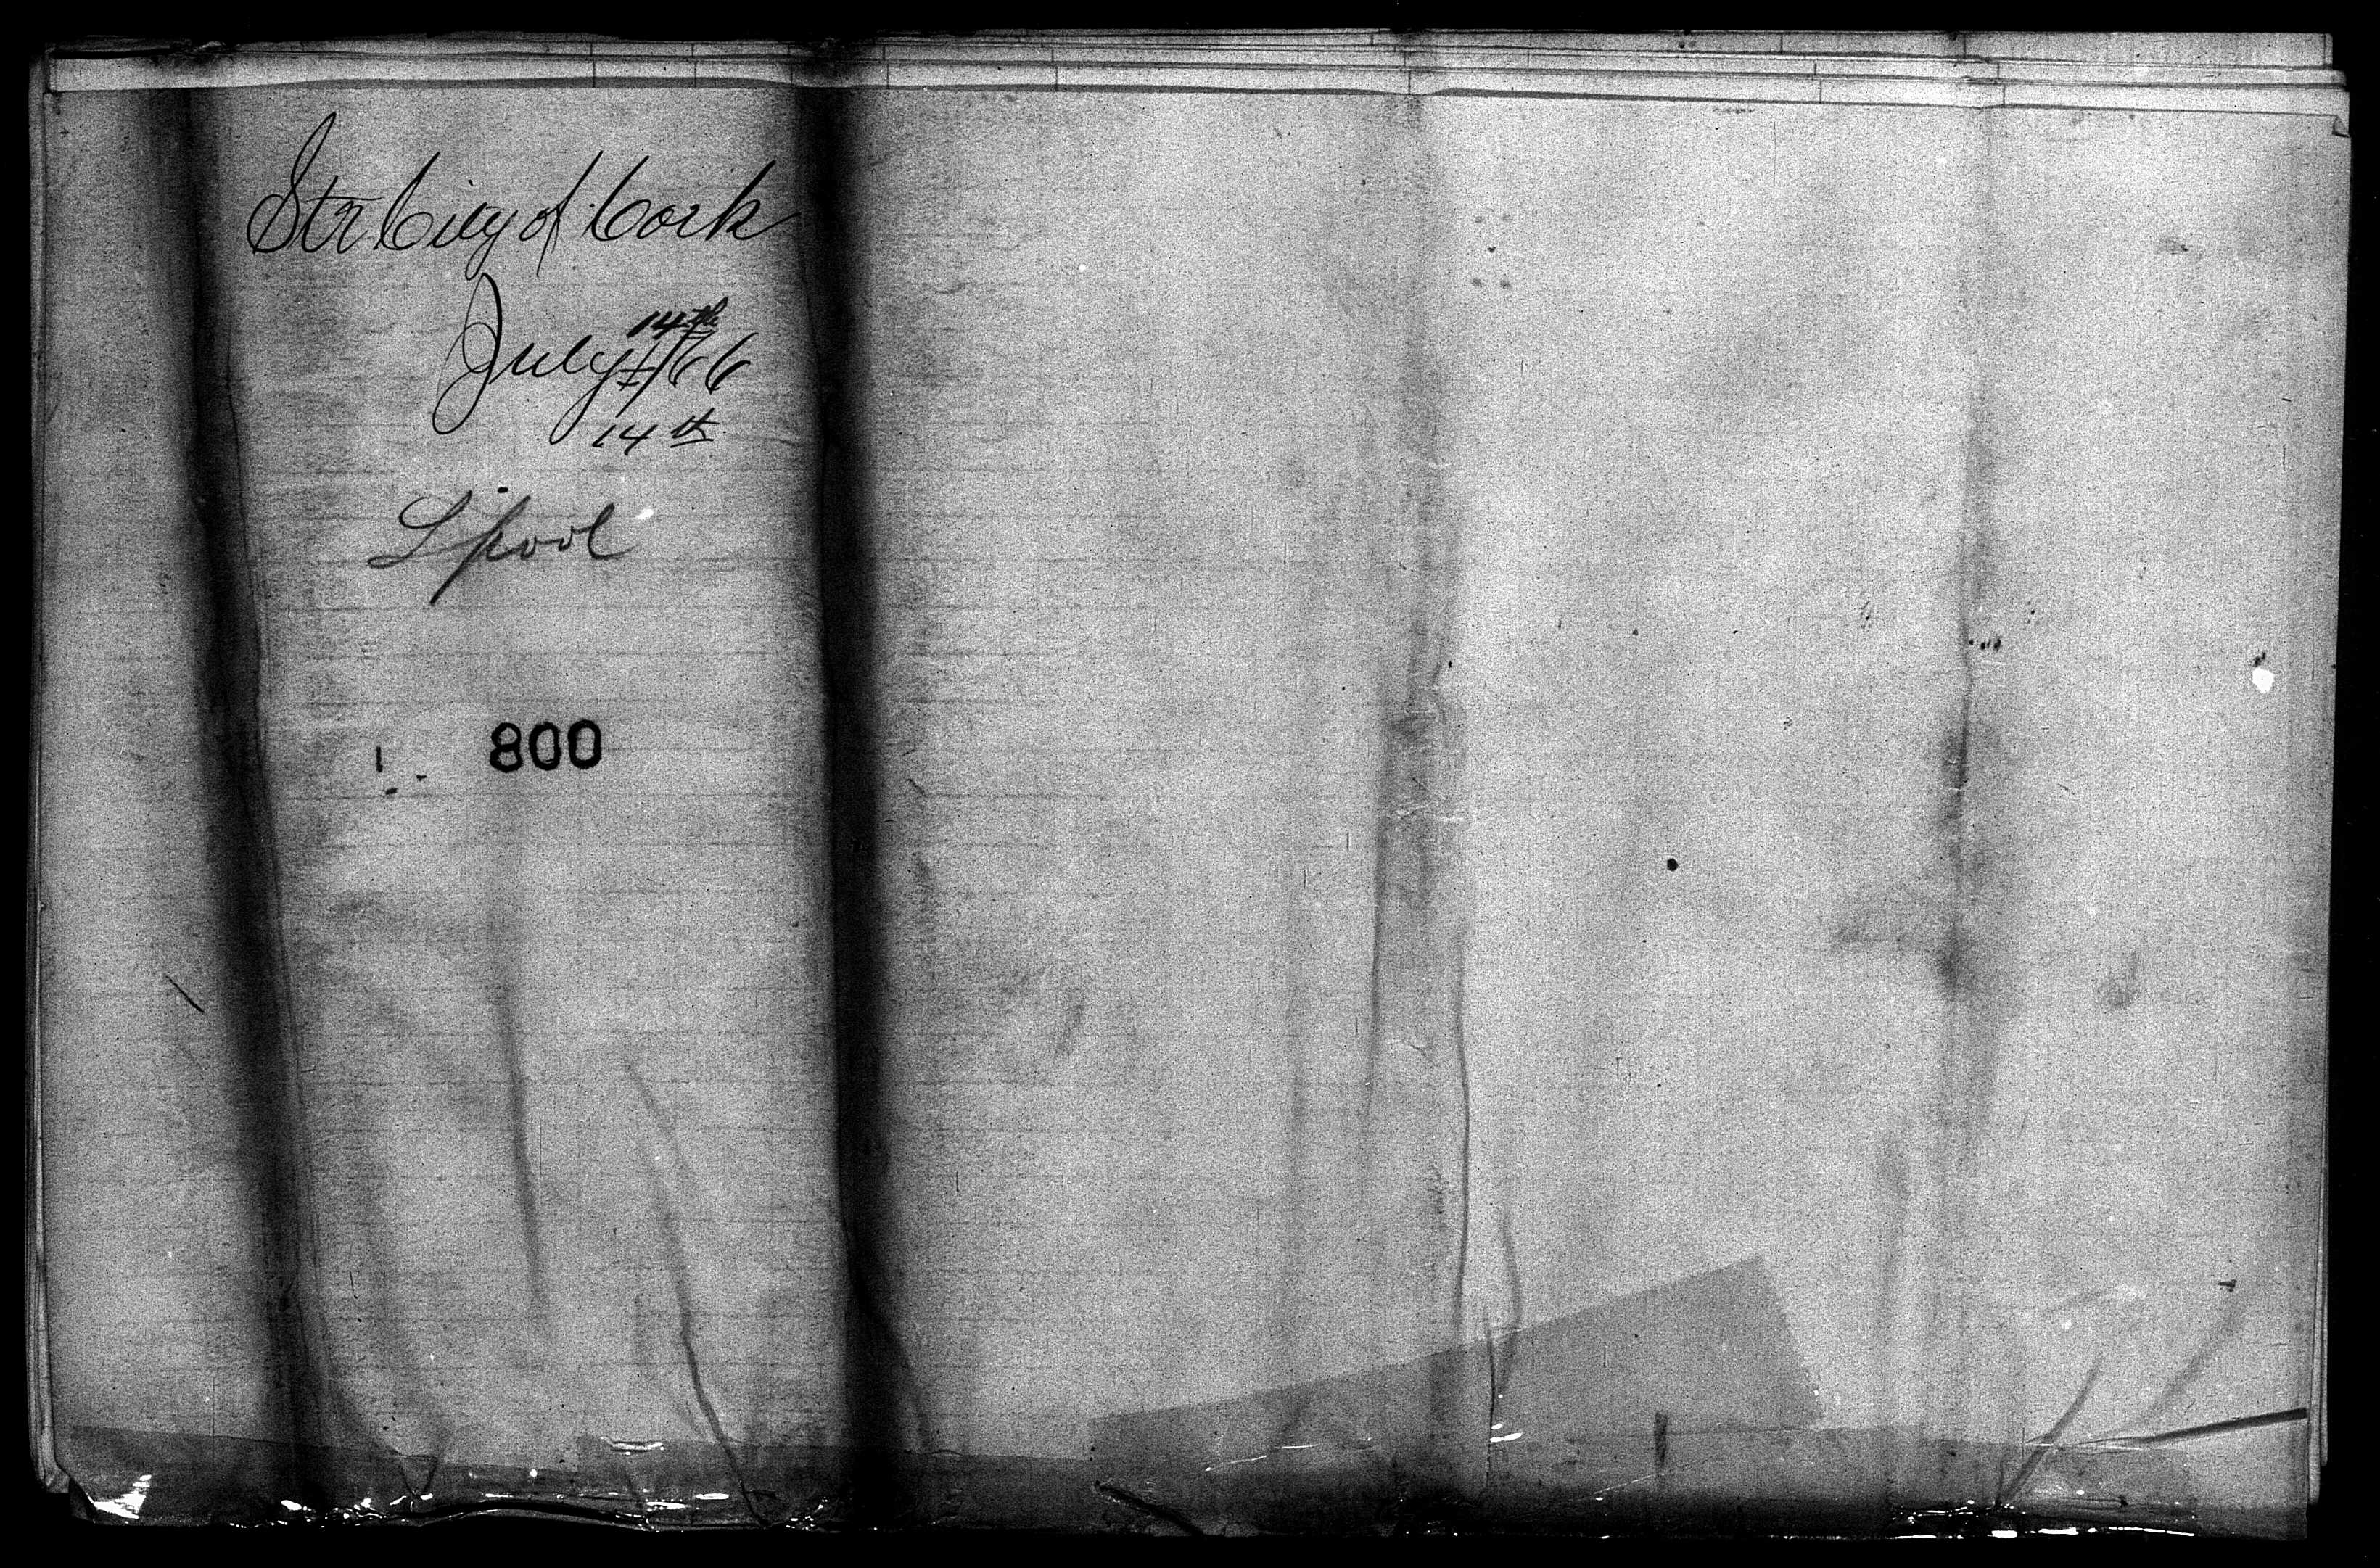 Str City of Cork
14th
July /66
14th
Lpool
800